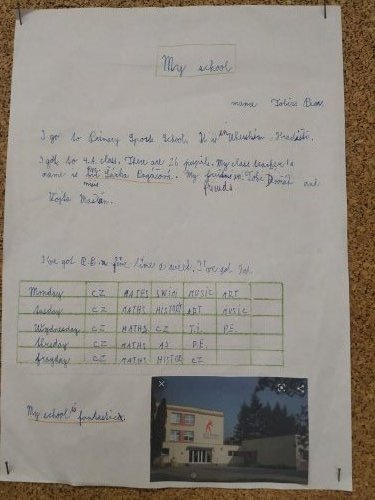 My school
name Tobias
I go to Primary Sports School. It is in Uherském Hradišti.
I got to 4.A class. There are 26 pupils. My class teacher's
name is Mrs Šárka My friends Tobi and
Vojta
I've got P.E. five time a week. I've got
Monday CZ MATHS SWIM MUSIC ART
Tusday CZ MATHS HISTORY ART MUSIC
Wydnesday CZ MATHS CZ P.E.
CZ MATHS AJ P.E.
Frayday CZ MATHS HISTORY CZ
My school is fantastic.